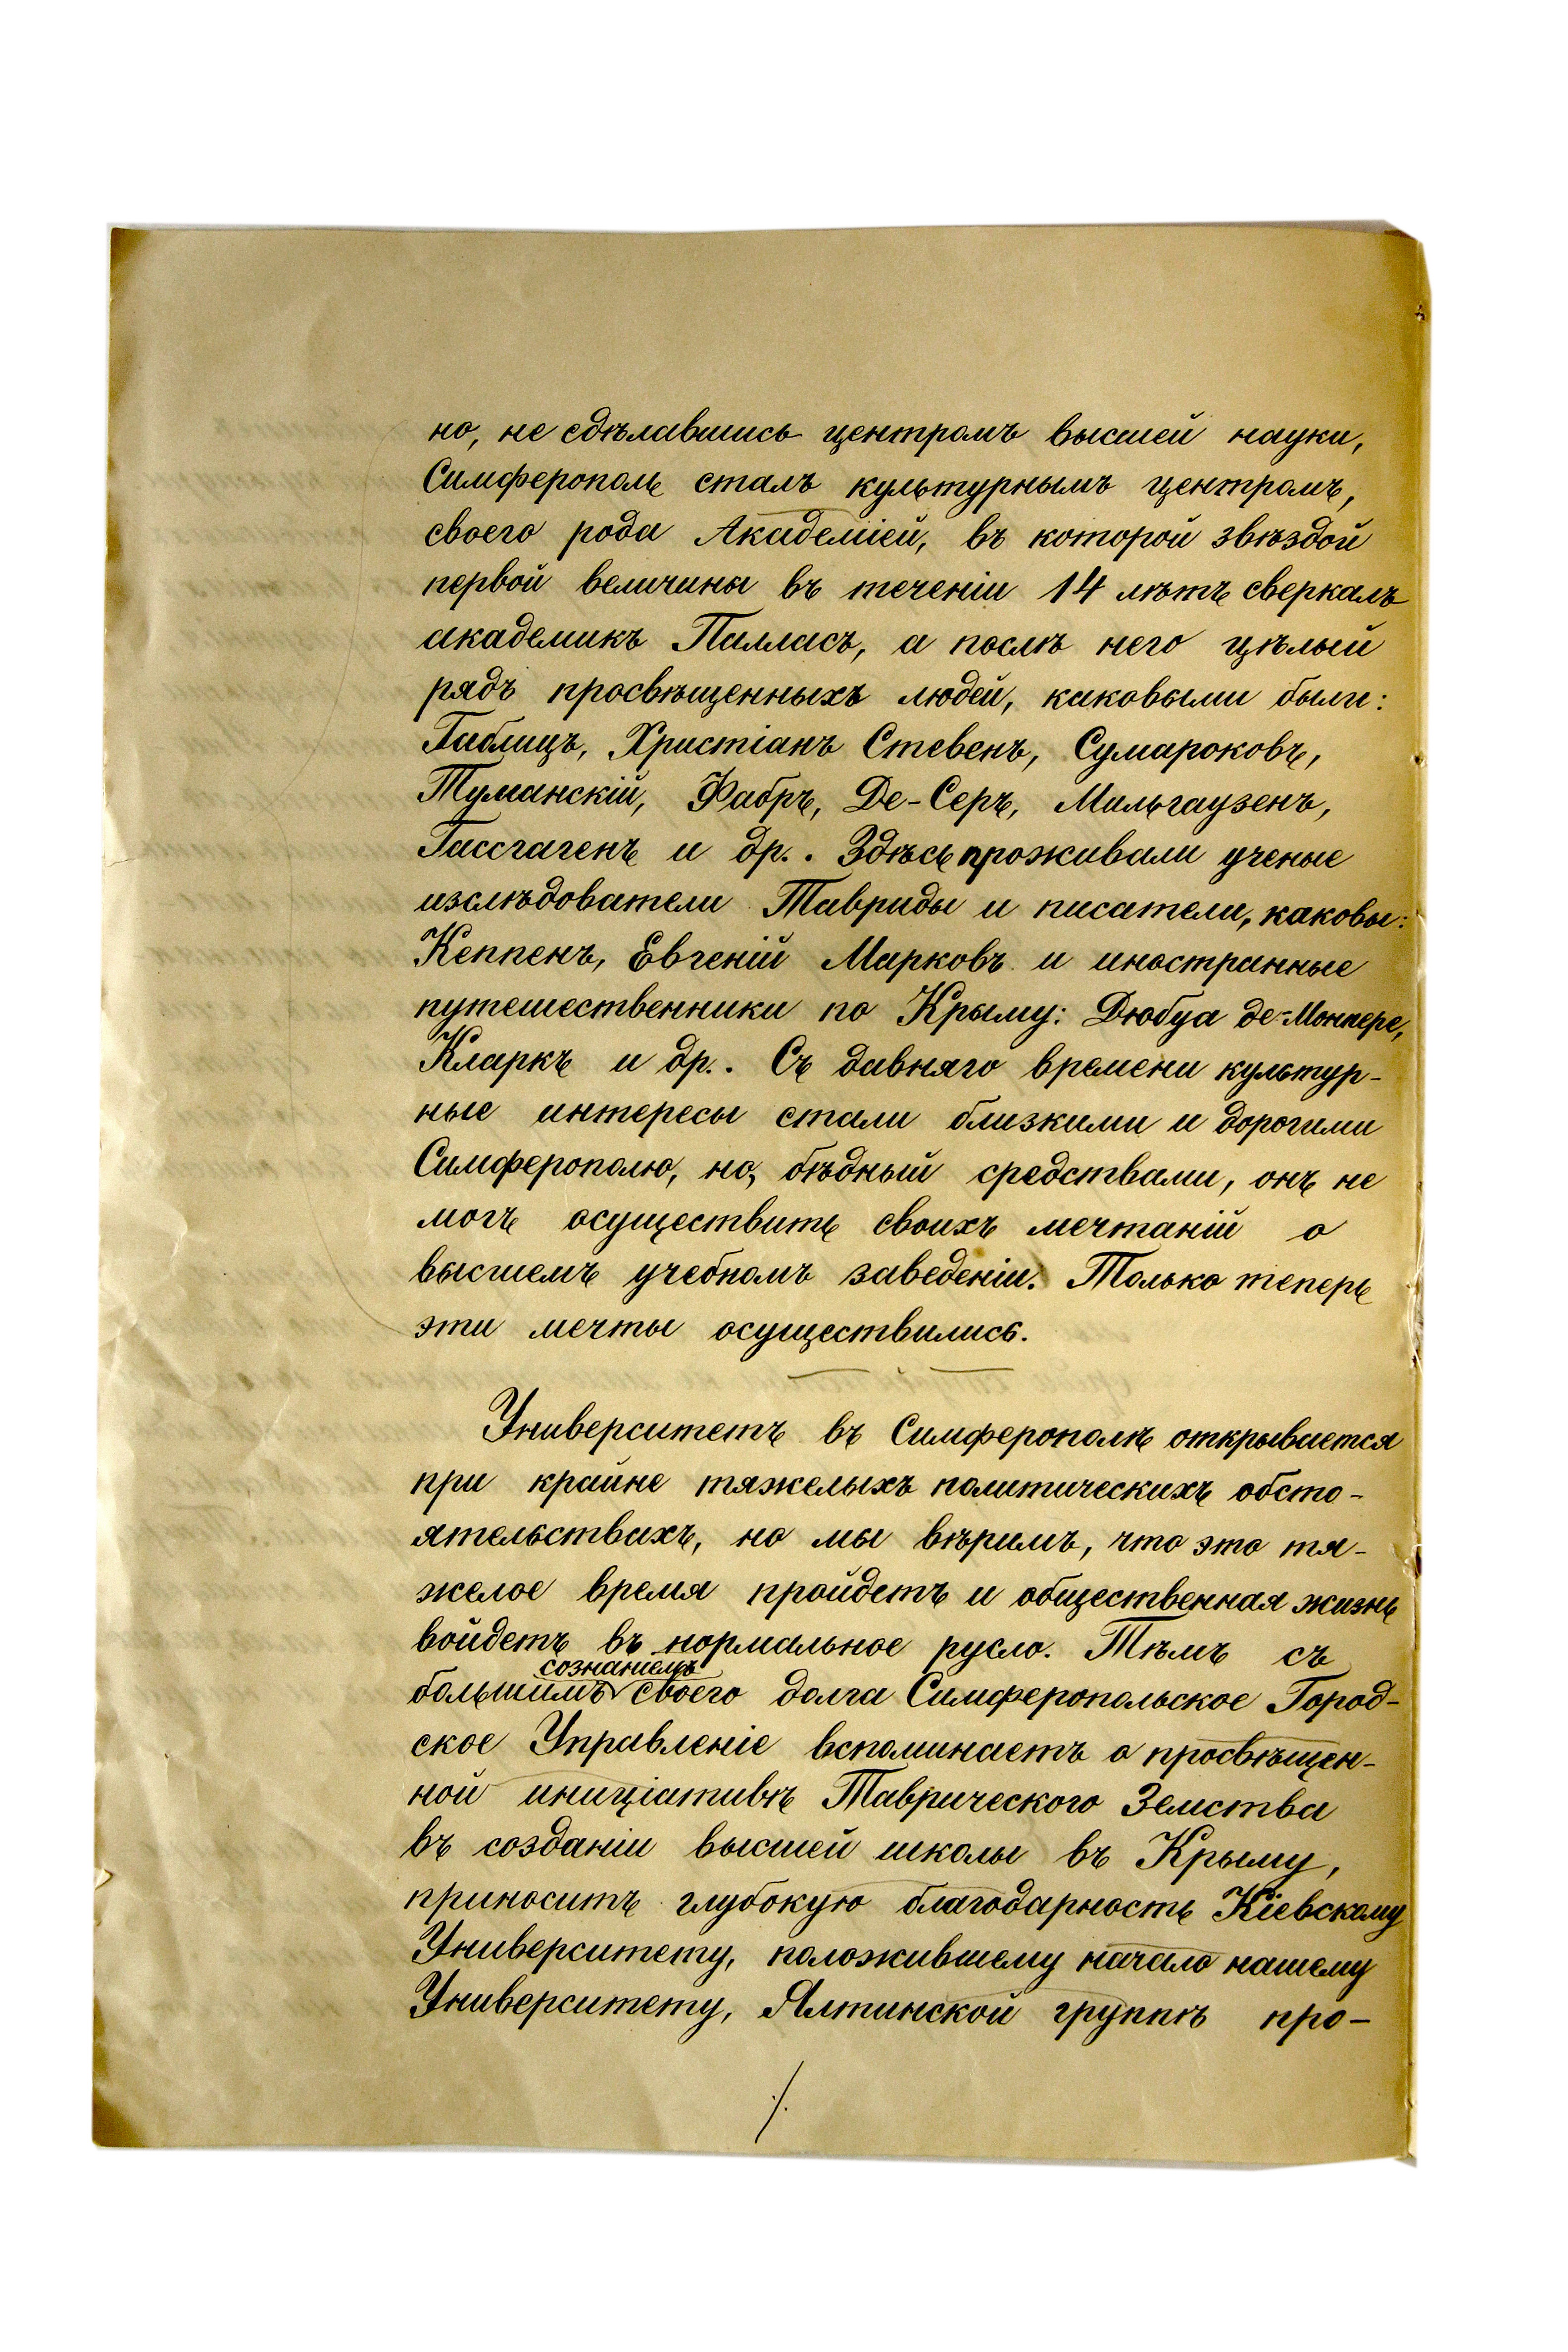 но, не сдѣлавшись центромъ высшей науки,
Симферополь сталъ культурнымъ центромъ,
своего рода Академіей, въ которой звѣздой
первой величины въ теченіи 14 лѣтъ сверкалъ
академикъ Палласъ, а послѣ него цѣлый
рядъ просвѣщенныхъ людей, каковыми были:
Габлицъ, Христіанъ Стевенъ, Сумароковъ,
Туманскій, Фабръ, Де-Серъ, Мильгаузенъ,
Гассгагенъ и др.. Здѣсь проживали ученые
изслѣдователи Тавриды и писатели, каковы:
Кеппенъ, Евгеній Марковъ и иностранные
путешественники по Крыму: Дюбуа де-Монпере,
Кларкъ и др.. Съ давняго времени культур-
ные интересы стали близкими и дорогими
Симферополю, но, бѣдный средствами, онъ не
могъ осуществить своихъ мечтаній о
высшемъ учебномъ заведеніи. Только теперь
эти мечты осуществились.
Университетъ въ Симферополѣ открывается
при крайне тяжелыхъ политическихъ обсто-
ятельствахъ, но мы вѣримъ, что это тя-
желое время пройдетъ и общественная жизнь
войдетъ въ нормальное русло. Тѣмъ съ
сознаніемъ
большимъ своего долга Симферопольское Город-
ское Управленіе вспоминаетъ о просвѣщен-
ной иниціативѣ Таврическаго Земства
въ созданіи высшей школы въ Крыму,
приноситъ глубокую благодарность Кіевскому
Университету, положившему начало нашему
Университету, Ялтинской группѣ про-
./.